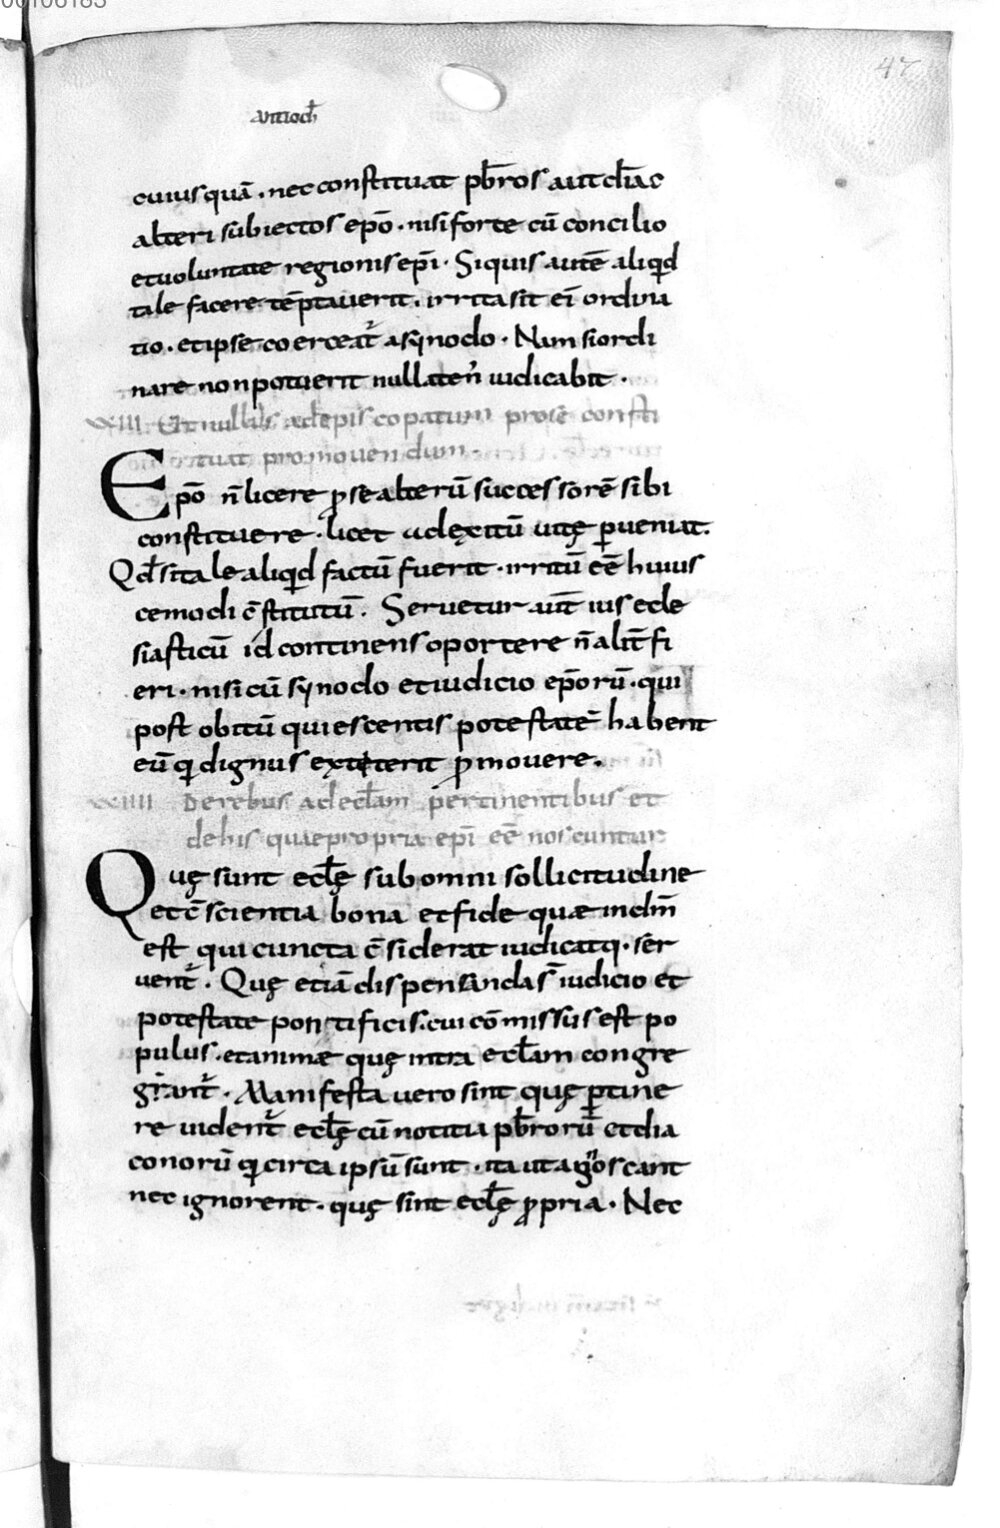 47
antioch̄
cuiusquā · nec constituat p̄bros aut diac̄
alteri subiectos ep̄o · nisi forte cū concilio
et uoluntate regionis ep̄i · Si quis autē aliq̄d
tale facere tēptauerit · irrita sit ei ordina
tio · et ipse coerceat᷑ a synodo · Nam si ordi
nare non potuerit nullaten᷑ iudicabit ·
XXIII. Ut nullus ad episcopatum pro se consti
tuat promouendum ·
Ep̄o n̄ licere ꝓ se alterū successorē sibi
constituere · licet ad exitū uitę ꝑueniat.
Qd̄ si tale aliq̄d factū fuerit · irritū eē huius
cemodi c̄stitutū . Seruetur aūt ius ecle
siasticū id continens oportere n̄ alit̄ fi
eri · nisi cū synodo et iudicio ep̄orū · qui
post obitū quiescentis potestatē habent
eū q̄ dignus extiterit ꝓmouere .
XXIIII De rebus ad ecl̄am pertinentibus et
de his quae propria ep̄i eē noscuntur
Quę sunt ecl̄ę sub omni sollicitudine
et c̄scientia bona et fide quæ in dm̄
est qui cuncta c̄siderat iudicatq · ser
uent᷑ . Quę etiā dispensanda s̄ iudicio et
potestate pontificis · cui cōmissus est po
pulus · et animæ quę intra ecl̄am congre
gant᷑ . Manifesta uero sint quę ꝑtine
re uident᷑ ecl̄ę cū notitia p̄brorū et dia
conorū q̄ circa ipsū sunt · ita ut agnoscant
nec ignorent · quę sint ecl̄ę ꝓpria · Nec